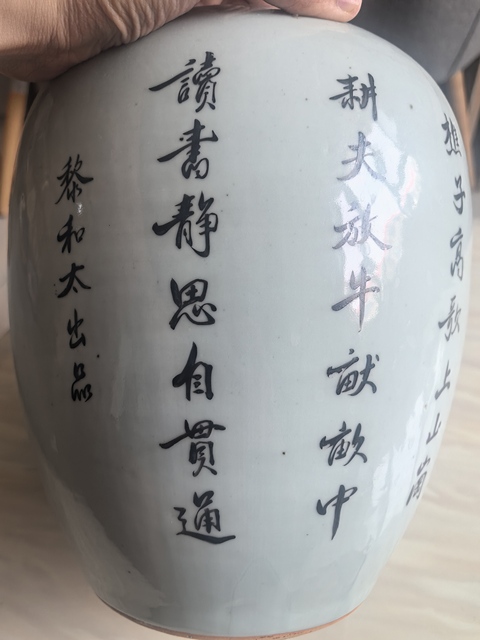 樵子高歌上山岗
耕夫放牛畎畝中
讀書静思自貫通
黎和太出品